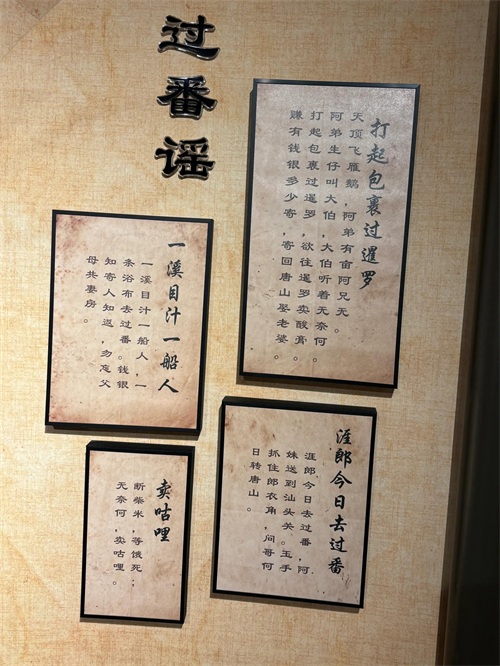 过番谣
打起包裹过暹罗
天顶飞雁鹅,阿弟有亩阿兄无。
阿弟生仔叫大伯,大伯听着无奈何。
打起包裹过暹罗,欲往暹罗卖酸膏。
赚有钱银多少寄,寄回唐山娶老婆。
一溪目汁一船人
一溪目汁一船人,一
条浴布去过番。钱银
知寄人知返,勿忘父
母共妻房。
涯郎今日去过番
涯郎今日去过番,阿
妹送到汕头关。玉手
抓住郎衣角,问哥何
日转唐山。
卖咕哩
断柴米,等饿死;
无奈何,卖咕哩。